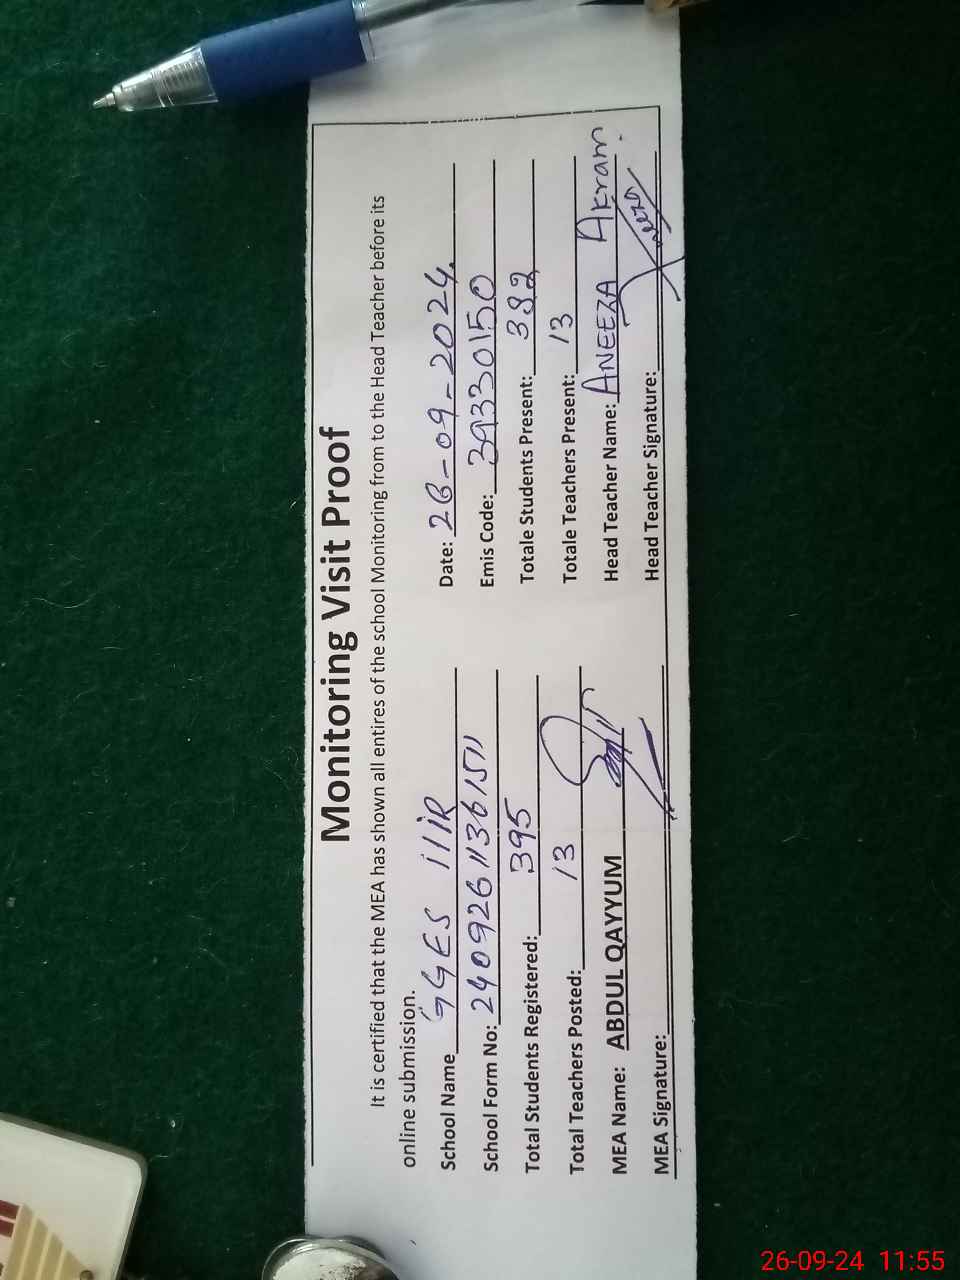 Monitoring Visit Proof
It is certified that the MEA has shown all entires of the school Monitoring from to the Head Teacher before its
online submission.
School Name GGES 111R Date: 26-09-2024.
School Form No: 24092611361511 Emis Code: 39330150
Total Students Registered: 395 Totale Students Present: 382
Total Teachers Posted: 13 Totale Teachers Present: 13
MEA Name: ABDUL QAYYUM Head Teacher Name: ANEEZA Akram.
MEA Signature: Head Teacher Signature:
26-09-24 11:55